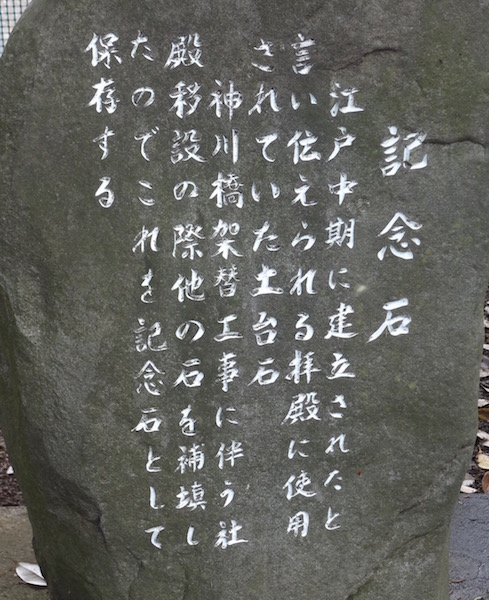 記念石
江戸中期に建立されたと
言い伝えられる拝殿に使用
されていた土台石
神川橋架替工事に伴う社
殿移設の際他の石を補填し
たのでこれを記念石として
保存する